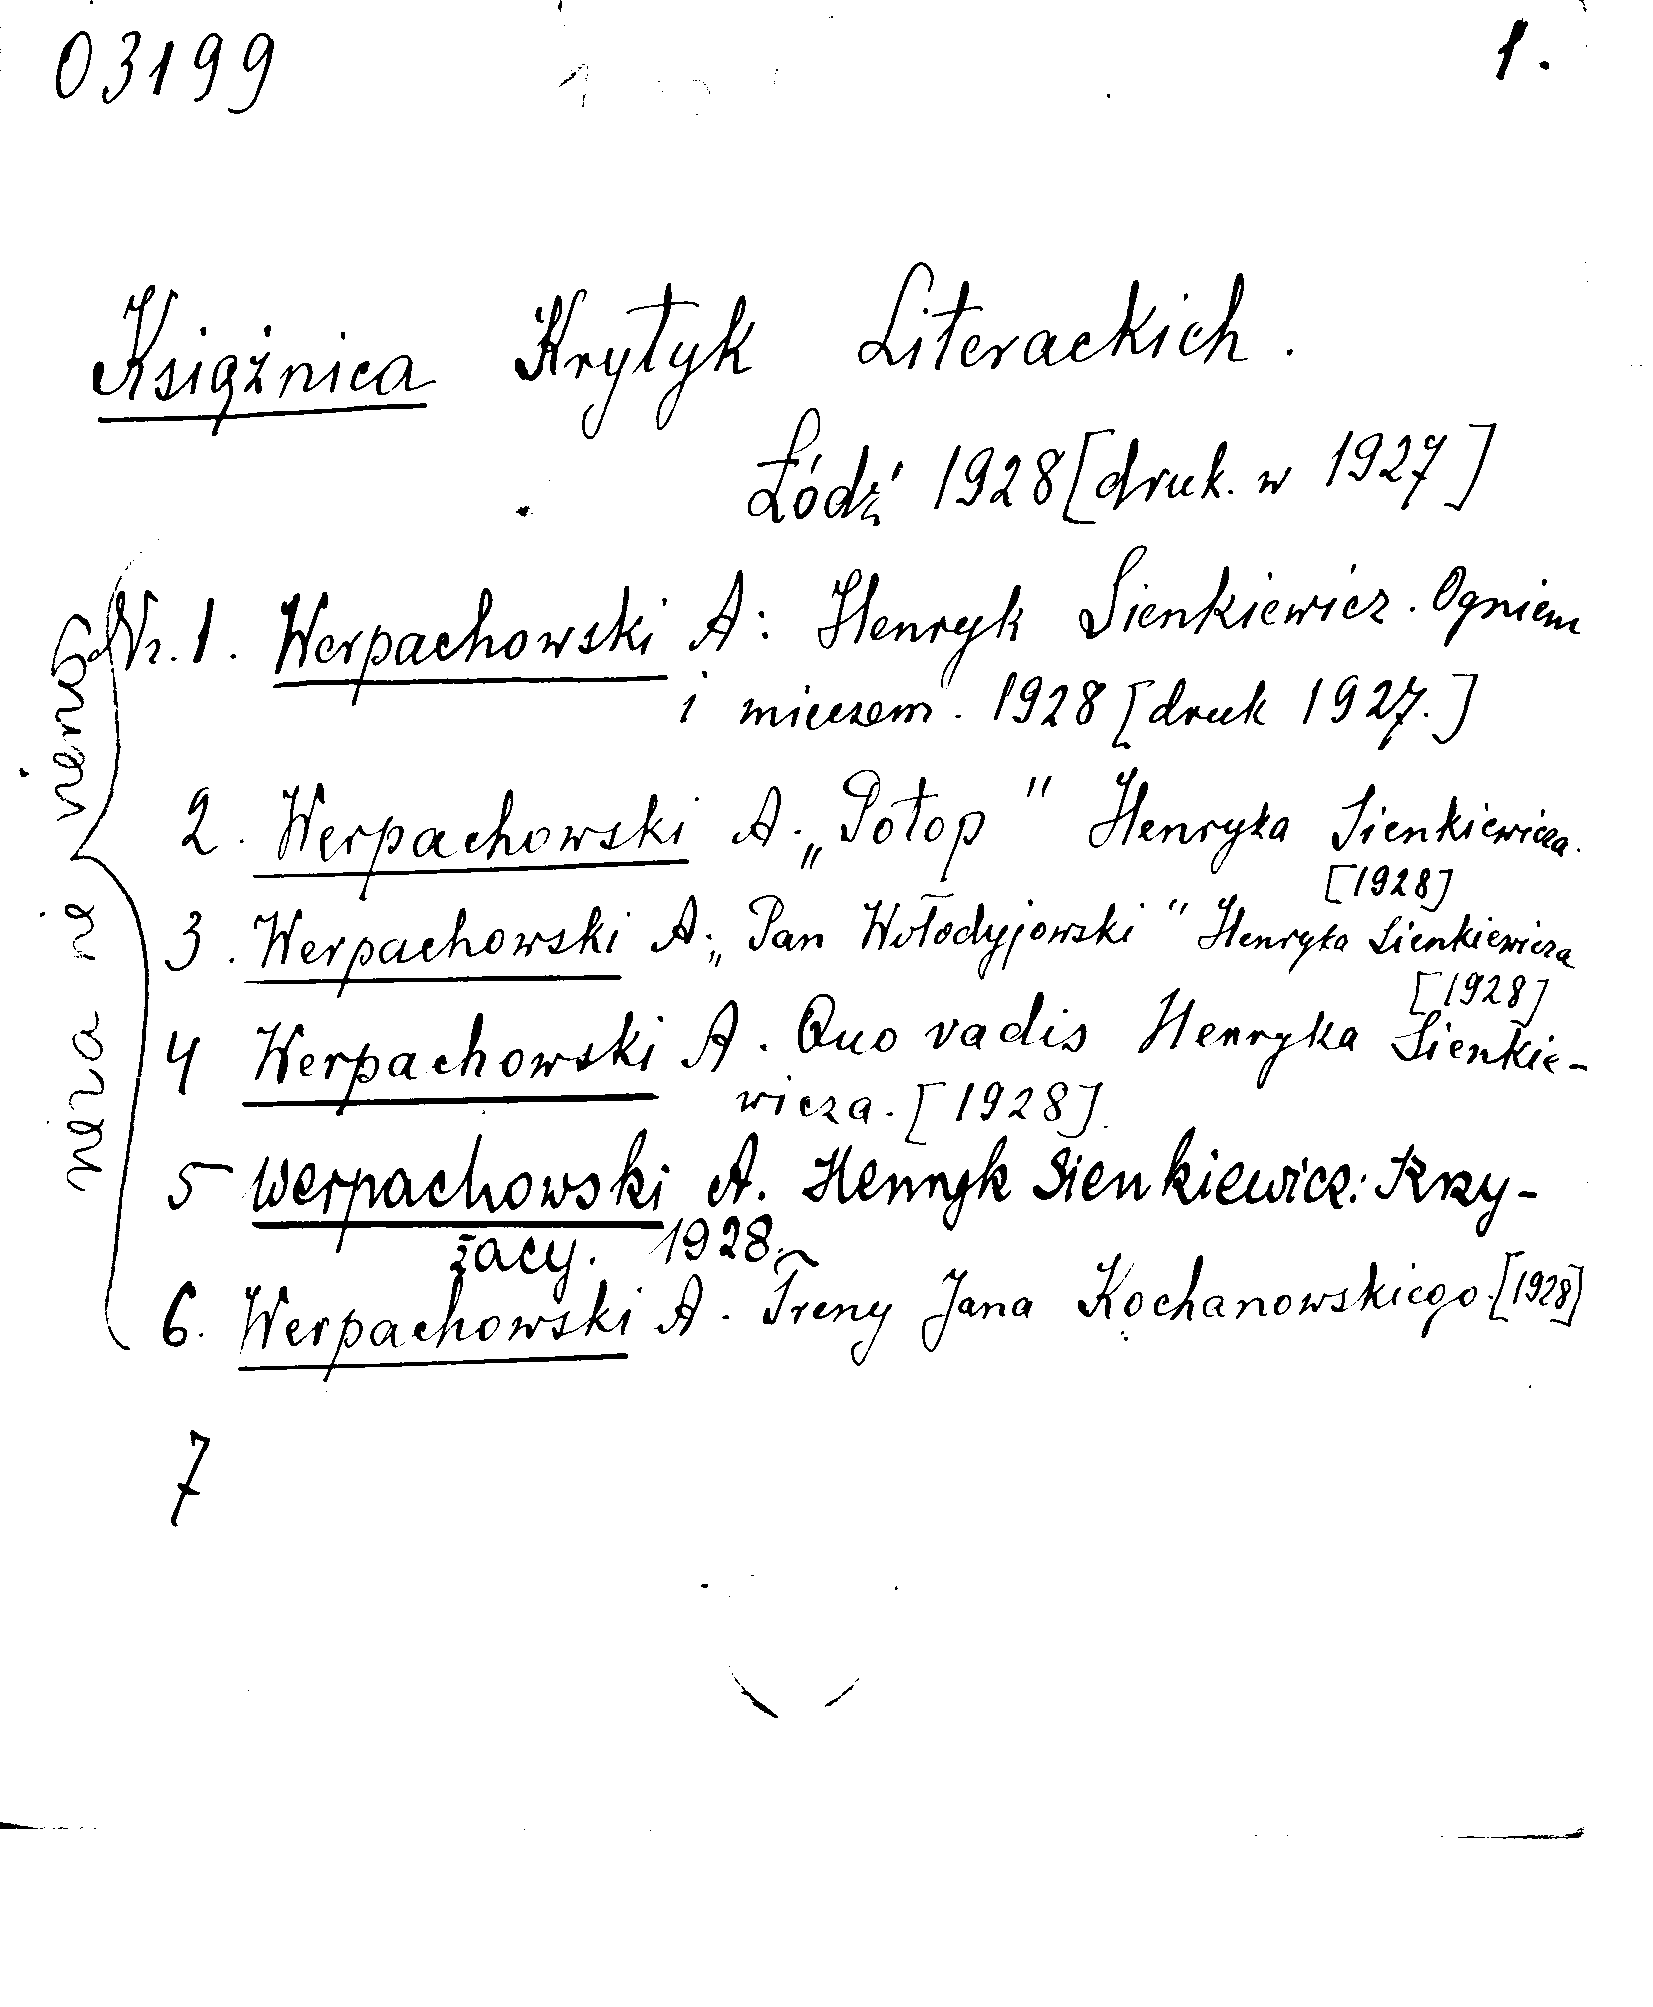 03199
1.
Książnica Krytyk Literackich.
Łódź 1928 [druk. w 1927]
Nr. 1. Werpachowski A: Henryk Sienkiewicz. Ogniem
i mieczem. 1928 [druk 1927.]
2. Werpachowski A. „Potop" Henryka Sienkiewicza.
[1928]
3. Werpachowski A. „Pan Wołodyjowski" Henryka Sienkiewicza
[1928]
4 Werpachowski A. Quo vadis Henryka Sienkie-
wicza. [1928]
5 Werpachowski A. Henryk Sienkiewicz: Krzy-
żacy. 1928.
6. Werpachowski A. Treny Jana Kochanowskiego. [1928]
7